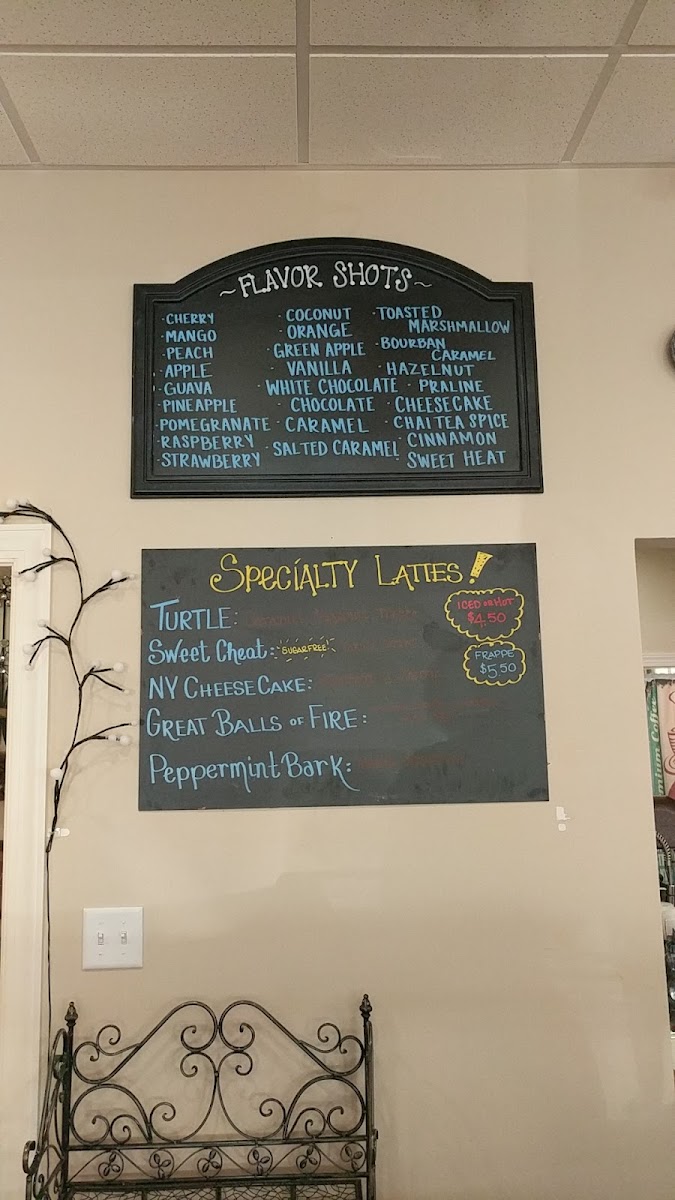 ~FLAVOR SHOTS~
·CHERRY
·MANGO
·PEACH
·APPLE
·GUAVA
·PINEAPPLE
·POMEGRANATE
·RASPBERRY
·STRAWBERRY
·COCONUT
·ORANGE
·GREEN APPLE
·VANILLA
·WHITE CHOCOLATE
·CHOCOLATE
·CARAMEL
·SALTED CARAMEL
·TOASTED
MARSHMALLOW
·BOURBAN
CARAMEL
·HAZELNUT
·PRALINE
·CHEESECAKE
·CHAI TEA SPICE
·CINNAMON
·SWEET HEAT
SPECIALTY LATTES!
TURTLE:
Sweet Cheat: SUGAR FREE
NY CHEESECAKE:
GREAT BALLS OF FIRE:
Peppermint Bark:
ICED OR HOT
$4.50
FRAPPE
$5.50